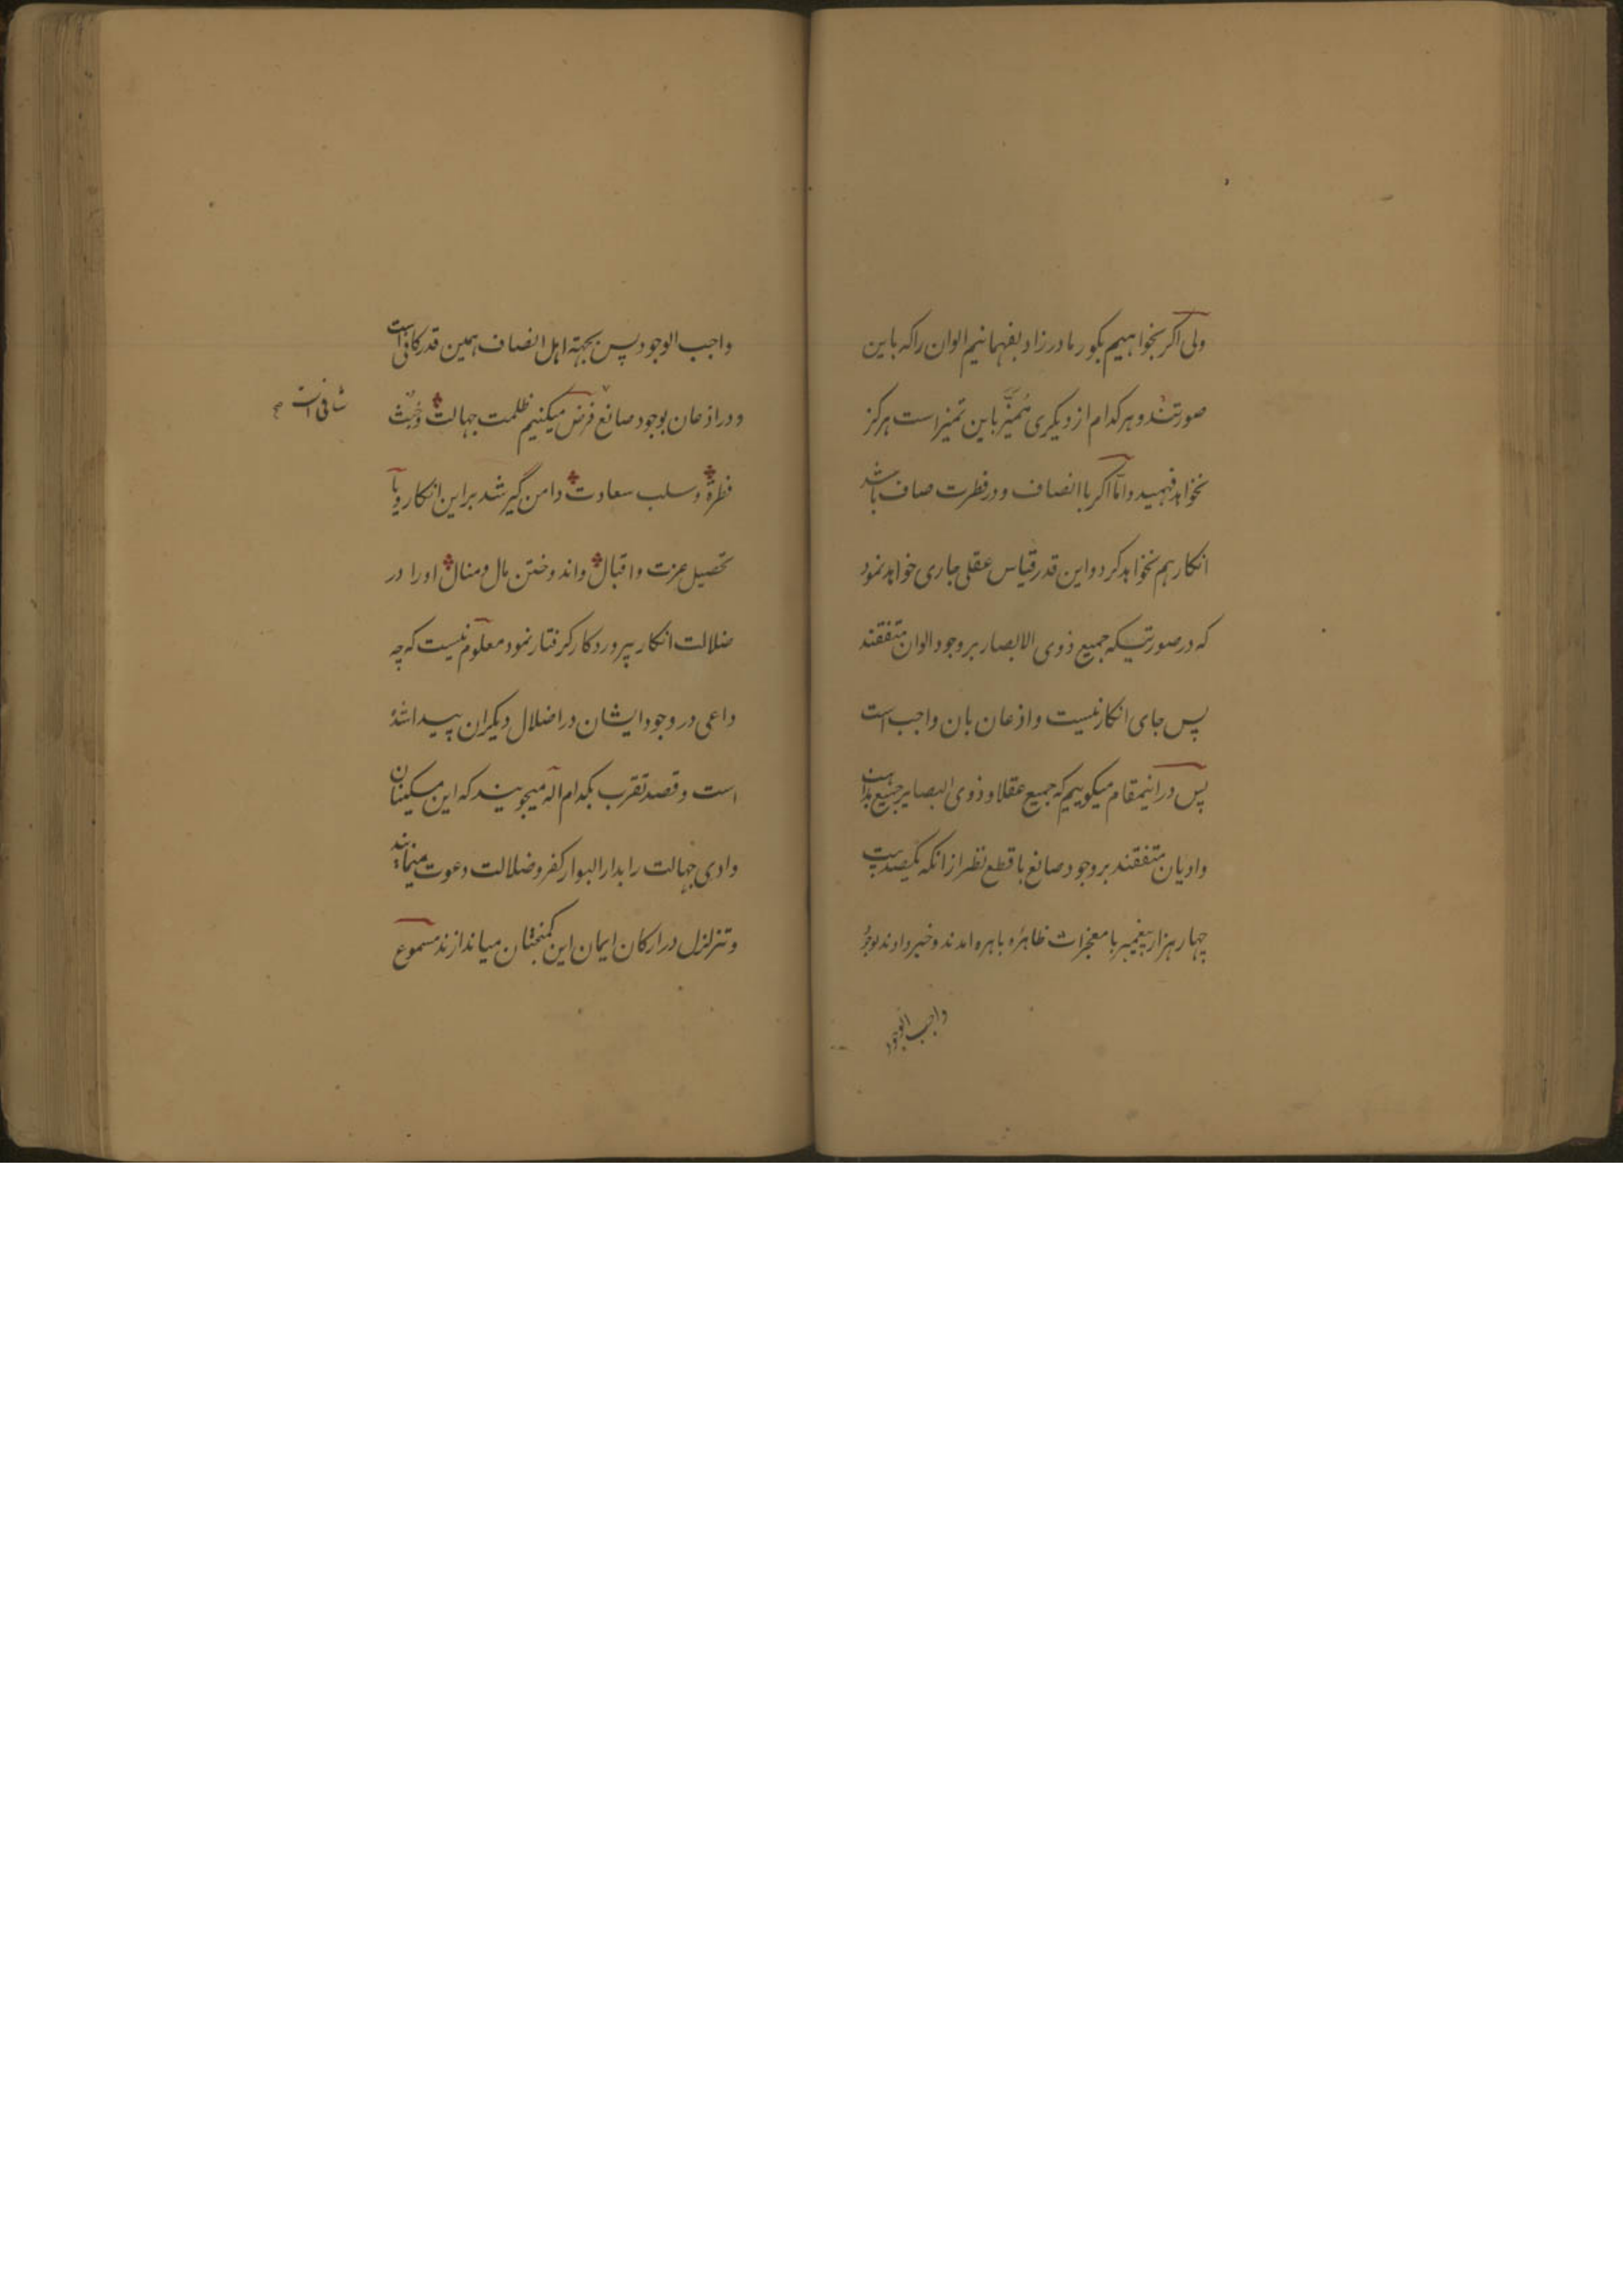 ولی اکر بخواهیم بکور مادرزاد بفهمانیم الوان را که باین
صورتند و هر کدام از دیکری ممیز باین تمیز است هرکز
نخواهد فهمید و امّا اکر با انصاف و در فطرت صاف باشد
انکار هم نخواهد کرد و این قدر قیاس عقلی جاری خواهد نمود
که در صورتیکه جمیع ذوی الابصار بر وجود الوان متفقند
پس جای انکار نیست و اذعان بان واجب است
پس در اینمقام میکوییم که جمیع عقلا و ذوی البصایر جمیع مذاهب
و ادیان متفقند بر وجود صانع با قطع نظر از انکه یکصد و بیست
چهار هزار پیغمبر با معجزات ظاهره و باهره امدند و خبر دادند بوجود
واجب الوجود
واجب الوجود پس بجهته اهل انصاف همین قدر کافی است
و در اذعان بوجود صانع فرض میکنیم ظلمت جهالت و خبث
شافی است صح
فطرة و سلب سعادت دامن گیر شد بر این انکار و یا
تحصیل عزت و اقبال و اندوختن مال و منال او را در
ضلالت انکار پروردکار کرفتار نمود معلوم نیست که چه
داعی در وجود ایشان در اضلال دیکران پیدا شده
است و قصد تقرب بکدام اله میجویند که این مسکینان
وادی جهالت را بدار البوار کفر و ضلالت دعوت مینمایند
و تزلزل در ارکان ایمان این کمبختان میاندازند مسموع